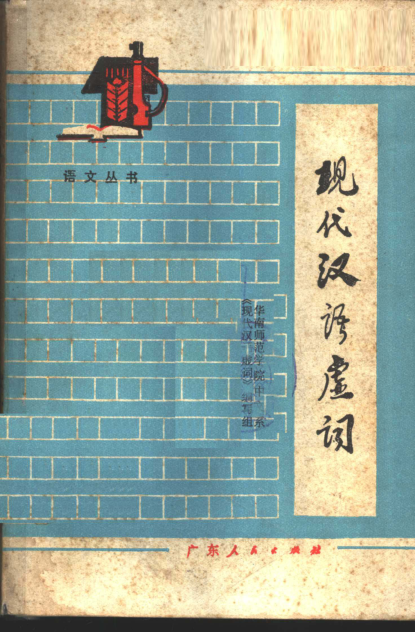 语文丛书
现代汉语虚词
华南师范学院中文系
《现代汉语虚词》编写组
广东人民出版社